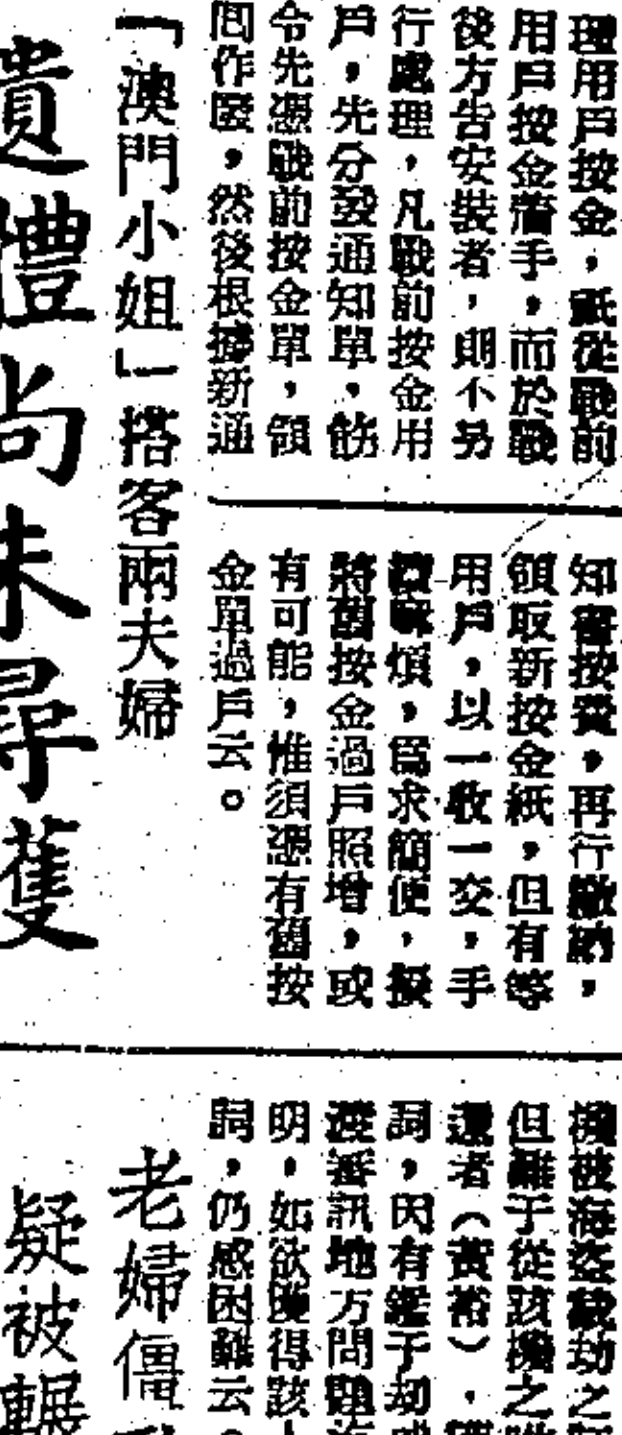 理用戶按金，祇從戰前
用戶按金着手，而於戰
後方告安裝者，則不另
行處理，凡戰前按金用
戶，先分發通知單，飭
令先憑戰前按金單，領
回作廢，然後根據新通
知書按費，再行繳納，
領取新按金紙，但有等
用戶，以一收一交，手
續麻煩，爲求簡便，擬
將舊按金過戶照增，或
有可能，惟須憑有舊按
金單過戶云。
「澳門小姐」搭客兩夫婦
遺體尚未尋獲
機被海盜截劫之
但難于從該機之
還者（黃裕），
詞，因有鑑于劫
渡審訊地方問題
明，如欲獲得該
詞，仍感困難云。
老婦僵
疑被輾